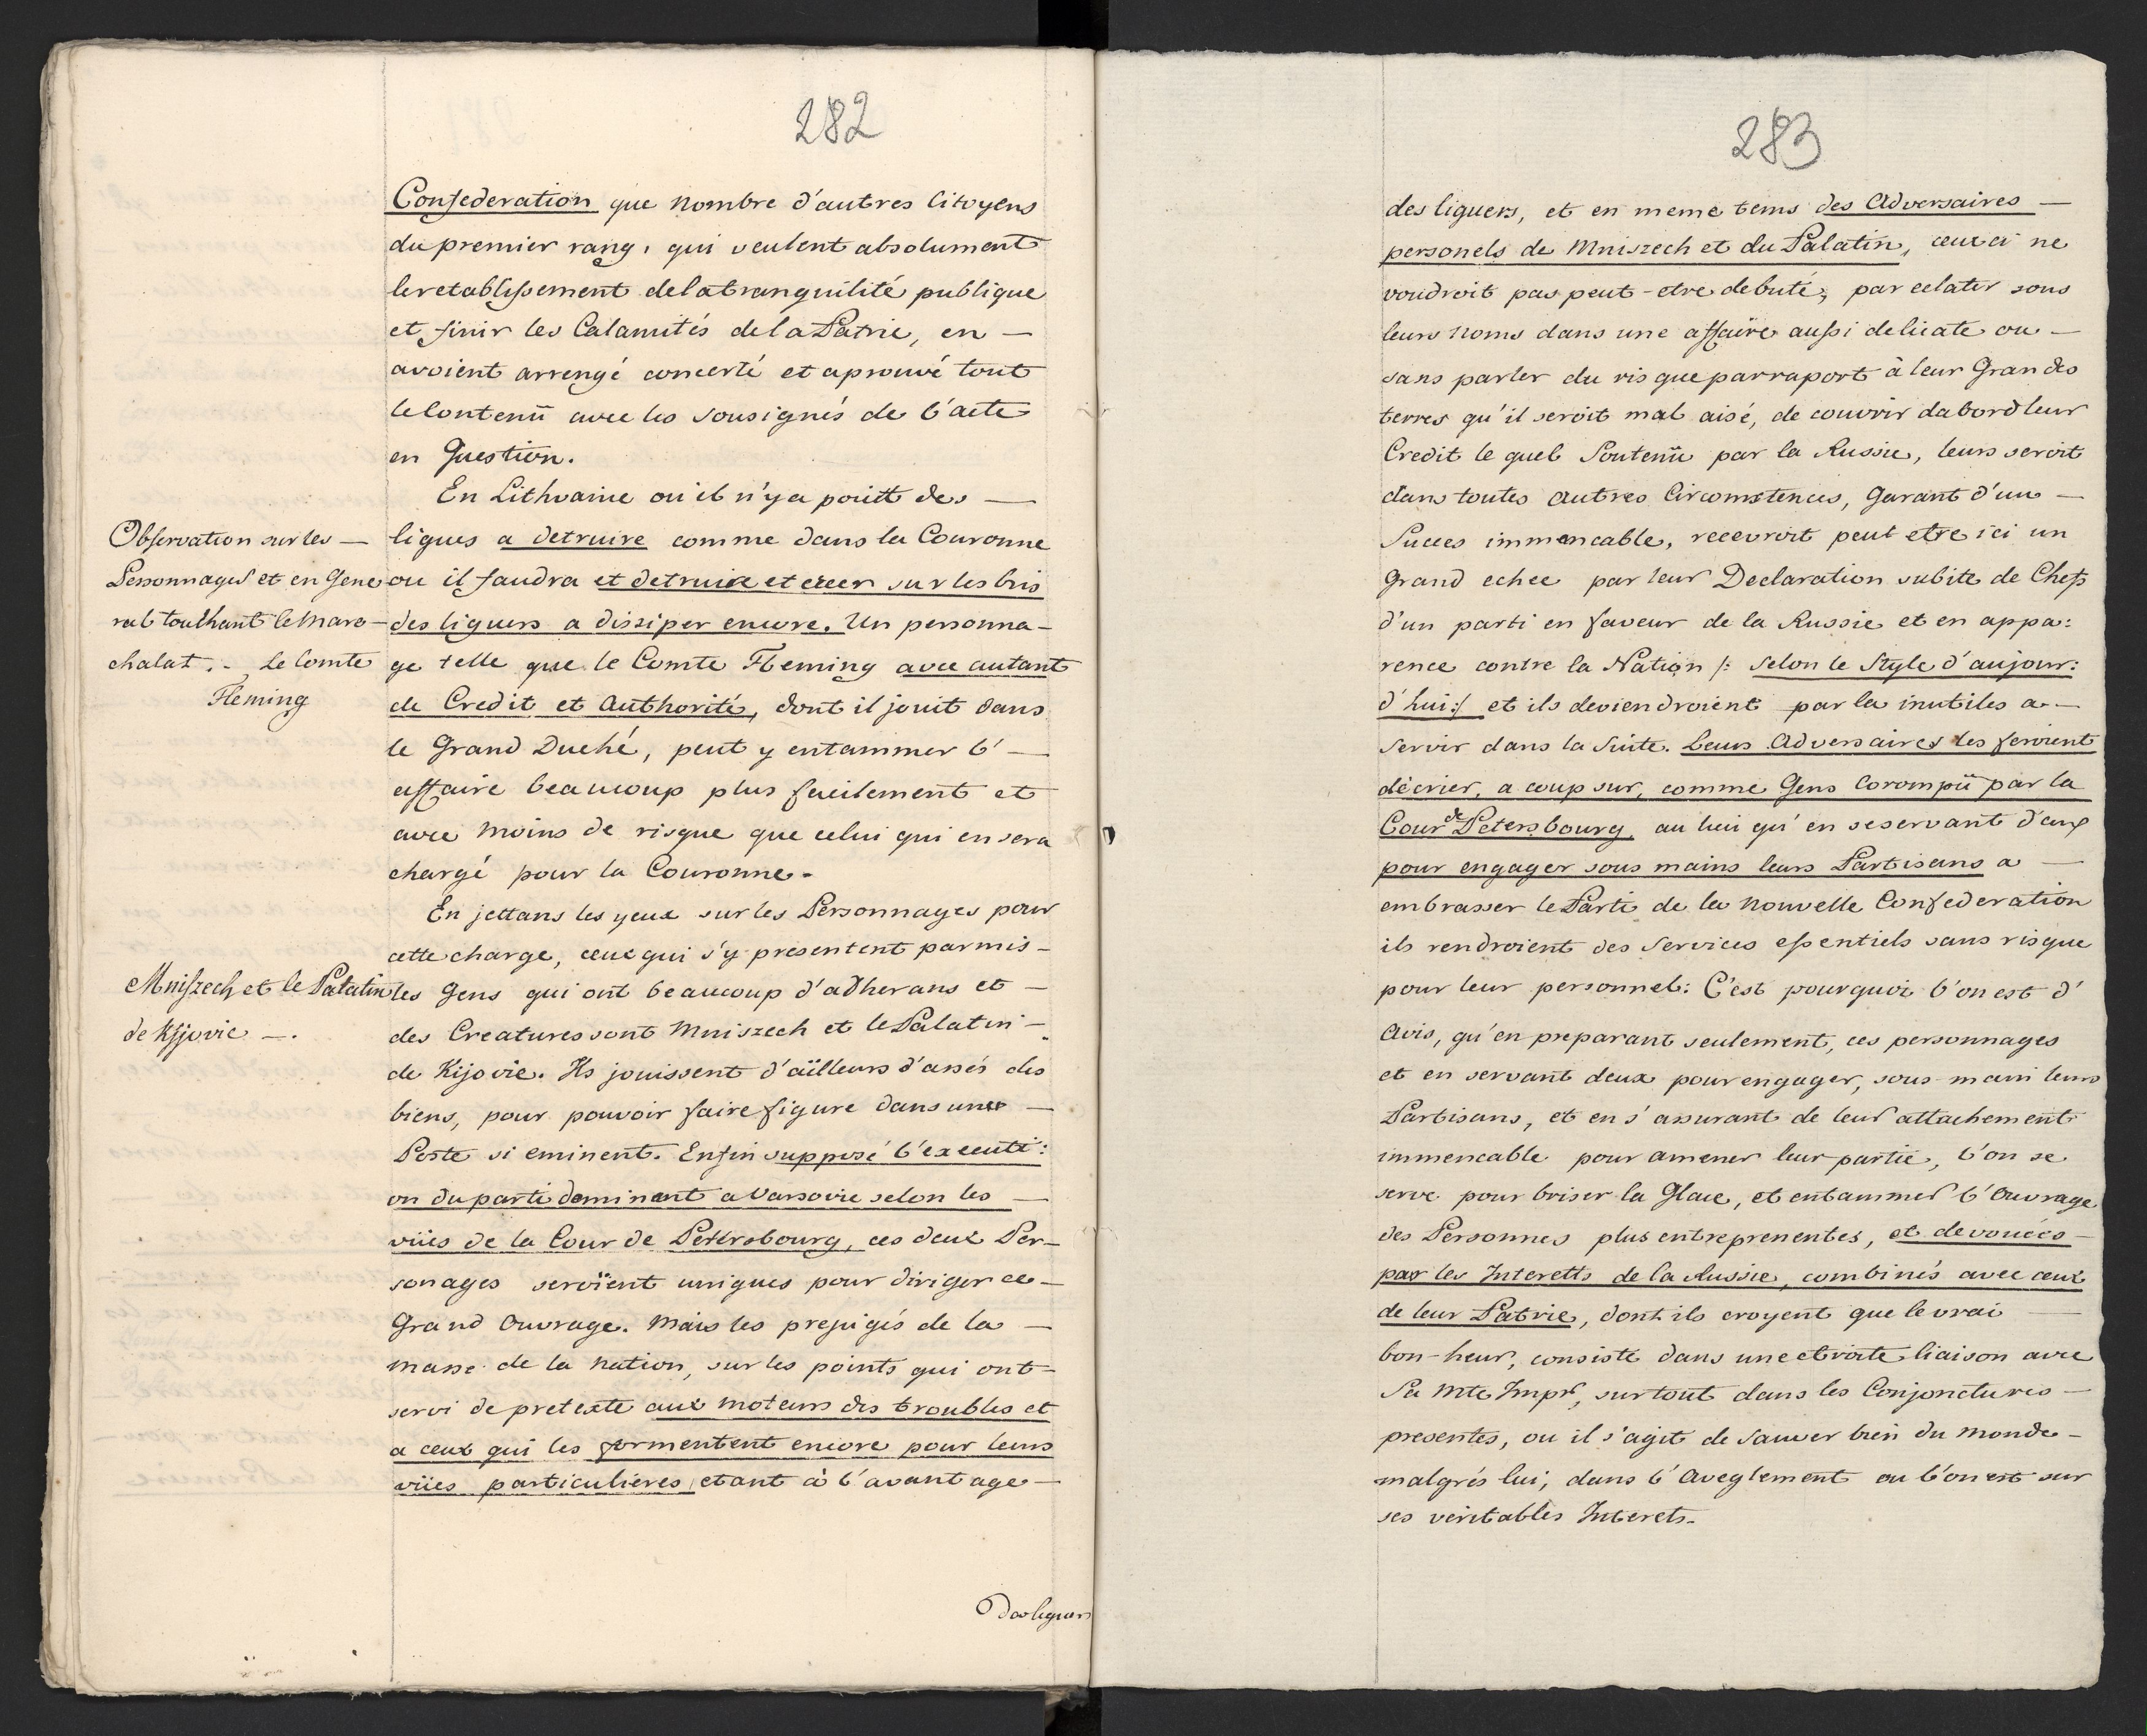 282
Confederation que nombre d'autres Citoyens
du premier rang, qui veulent absolument
le retablissement de la tranquilité publique
et finir les Calamités de la Patrie, en —
avoient arrengé concerté et aprouvé tout
le Contenü avec les Sousignés de l'acte
en Question.
En Lithvanie ou il n'y a point des —
ligues a detruire comme dans la Couronne
ou il faudra et detruire et créer sur les bris
des liguers a dissiper encore. Un personna-
ge telle que le Comte Fleming avec autant
de Credit et Authorité, dont il jouit dans
le Grand Duché, peut y entammer l' —
affaire beaucoup plus facilement et
avec moins de risque que celui qui en sera
chargé pour la Couronne.
En jettans les yeux sur les Personnages pour
cette charge, ceux qui s'y presentent parmis -
les Gens qui ont beaucoup d'adherans et —
des Creatures sont Mniszech et le Palatin -
de Kijovie. Ils jouissent d'ailleurs d'assés des
biens, pour pouvoir faire figure dans une —
Poste si eminent. Enfin supposé l'executi:
on du parti dominant a Varsovie selon les —
vües de la Cour de Petersbourg, ces deux Per-
sonages seroient uniques pour diriger ce —
Grand Ouvrage. Mais les prejugés de la —
masse de la nation, sur les points qui ont -
servi de pretexte aux moteurs des troubles et
a ceux qui les formentent encore pour leurs
vües particuliéres etant à l'avantage —
Des liguers
Observation sur les —
Personnages et en Gene
ral touchant le Mare-
chalat. - Le Comte
Fleming
Mniszech et le Palatin
de Kijovie —.
283
des liguers, et en meme tems des Adversaires —
personels de Mniszech et du Palatin, ceux ci ne
voudroit pas peut-etre debuté, par eclater sous
leurs noms dans une affaire aussi delicate ou —
sans parler du risque parraport à leur Grandes
terres qu'il seroit mal aisé, de couvrir dabord leur
Credit le quel Soutenü par la Russie, leurs seroit
dans toutes autres Circomstences, Garant d'un —
Succes immencable, recevroit peut etre ici un
Grand echec par leur Declaration subite de Chefs
d'un parti en faveur de la Russie et en appa:
rence contre la Nation /: selon le Style d'aujour:
d'hui :/ et ils deviendroient par la inutiles a —
servir dans la Suite. Leurs Adversaires les feroient
décrier, a coup sur, comme Gens Corompü par la
Cour de Petersbourg, au lieu qu'en se servant d'eux
pour engager sous mains leurs Partisans a —
embrasser le Parti de la nouvelle Confederation
ils rendroient des Services essentiels sans risque
pour leur personnel: C'est pourquoi l'on est d'
Avis, qu'en preparant seulement, ces personnages
et en servant deux pour engager, sous-main leurs
Partisans, et en s'assurant de leur attachement
immencable pour amener leur partie, l'on se
serve pour briser la Glace, et entammer l'Ouvrage
des Personnes plus entreprenentes, et devouées —
par les Interetts de la Russie, combinés avec ceux
de leur Patrie, dont ils croyent que le vrai —
bon-heur, consiste dans une etroite liaison avec
Sa Mte Impr, surtout dans les Conjonctures —
presentes, ou il s'agit de sauver bien du monde —
malgrés lui, dans l'Aveglement ou l'on est sur
ses veritables Interets.